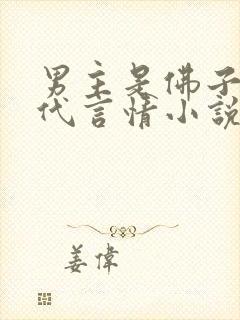 男主是佛子
代言情小說
姜偉